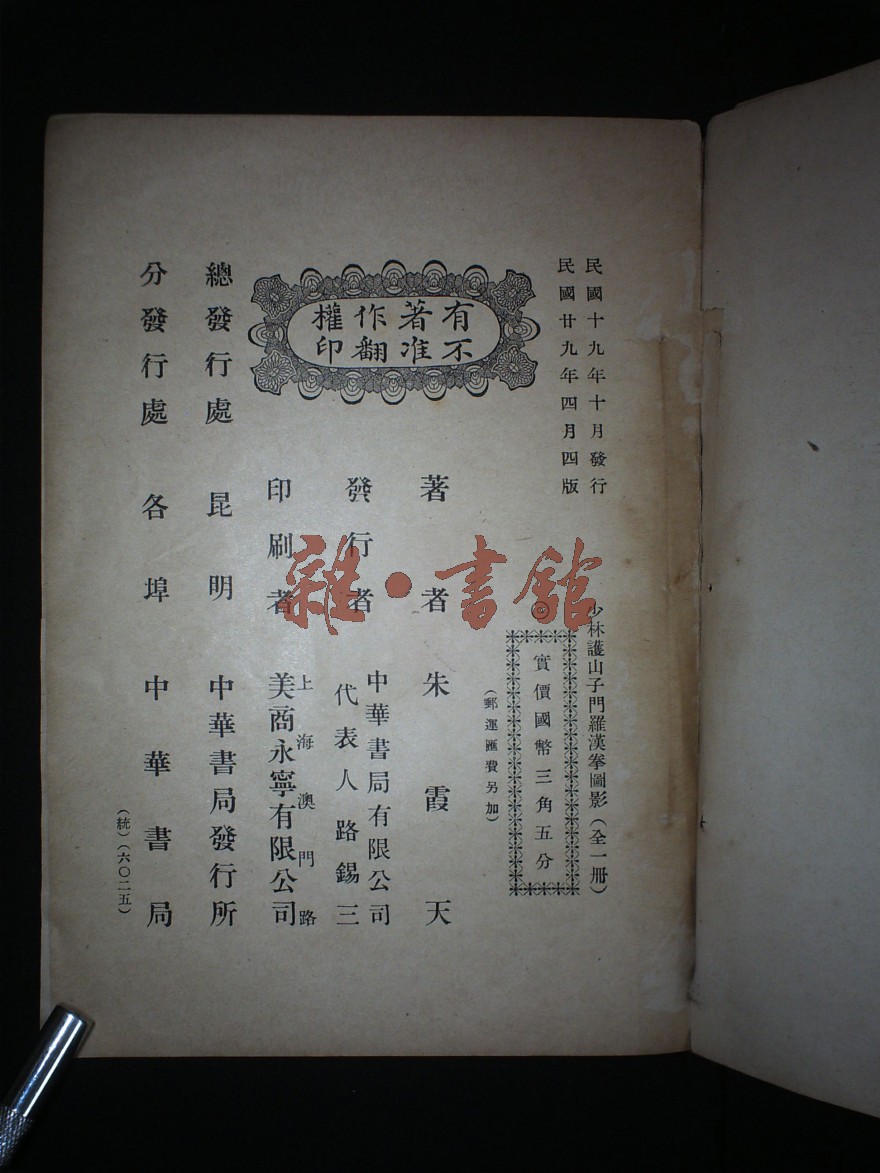 民國十九年十月發行
民國廿九年四月四版
少林護山子門羅漢拳圖影（全一冊）
◎
實價國幣三角五分
（郵運匯費另加）
有著作權
不准翻印
著者 朱霞天
發行者 中華書局有限公司
代表人 路錫三
印刷者 上海澳門路
美商永寧有限公司
總發行處 昆明 中華書局發行所
分發行處 各埠 中華書局
（統）（六〇二五）
雜·書館